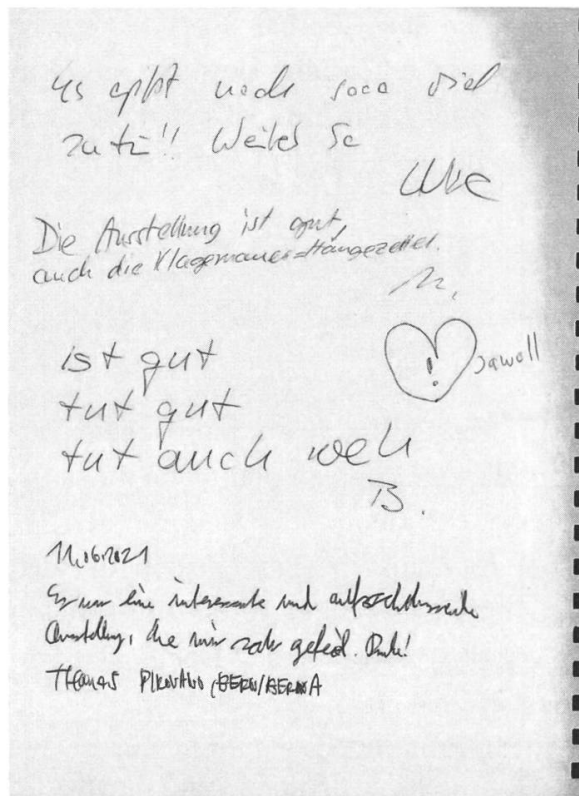 Es gibt noch sooo viel
zu tu'' Weiter So
Uwe
Die Ausstellung ist gut,
auch die Klagemauer-Hängezettel.
M.
! Jawoll
ist gut
tut gut
tut auch weh
B.
11.06.2021
Es war eine interessante und aufschlussreiche
Ausstellung, die mir sehr gefiel. Danke!
Thomas BERN/BERNA